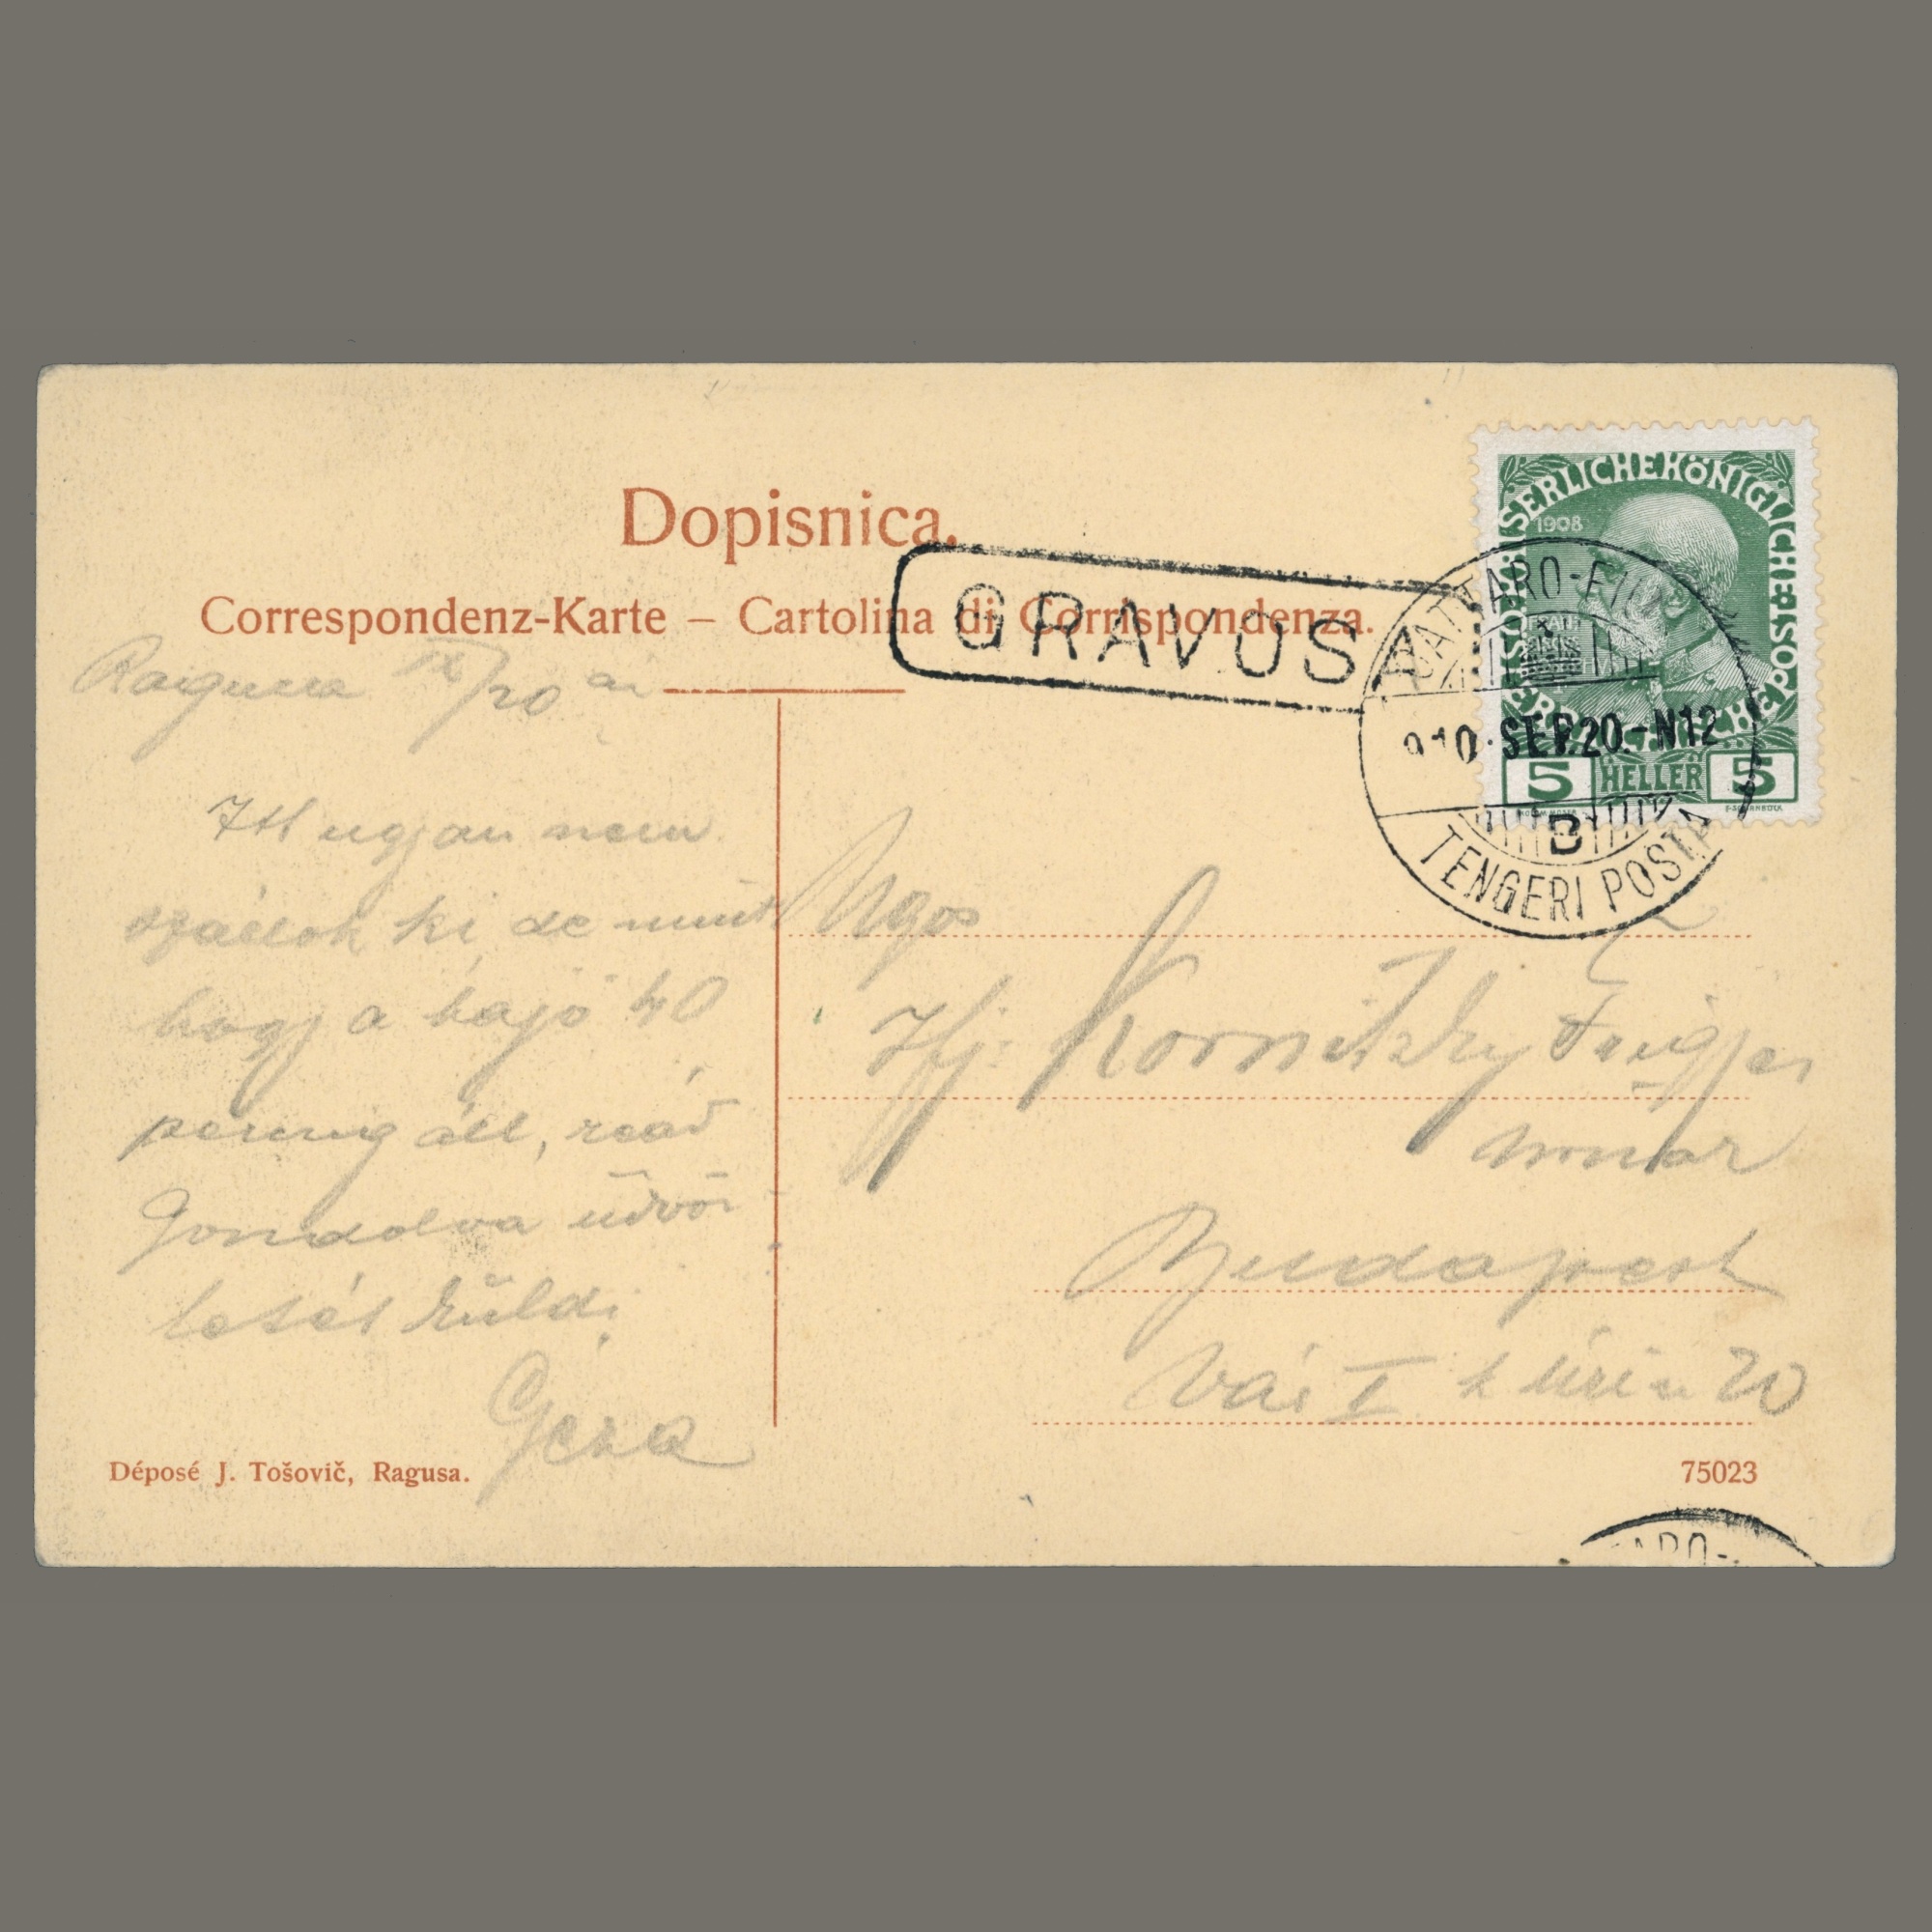 Dopisnica.
Correspondenz-Karte – Cartolina di Corrispondenza.
GRAVOSA
KAISERLICHE KÖNIGLICHE ÖSTERREICHISCHE POST
1908
5 HELLER 5
CATTARO-FIUME
910. SEP. 20.-N12
B
TENGERI POSTA
Ragusa IX/20 án
Itt ugyan nem
szállok ki, de mint
hogy a hajó 40
perczig áll, reád
gondolva üdvöz
letét küldi
Géza
Ngos
Ifj. Kornitzky Frigyes
úrnak
Budapest
Vár I. k Úri u 20
Déposé J. Tošovič, Ragusa.
75023
ARO-